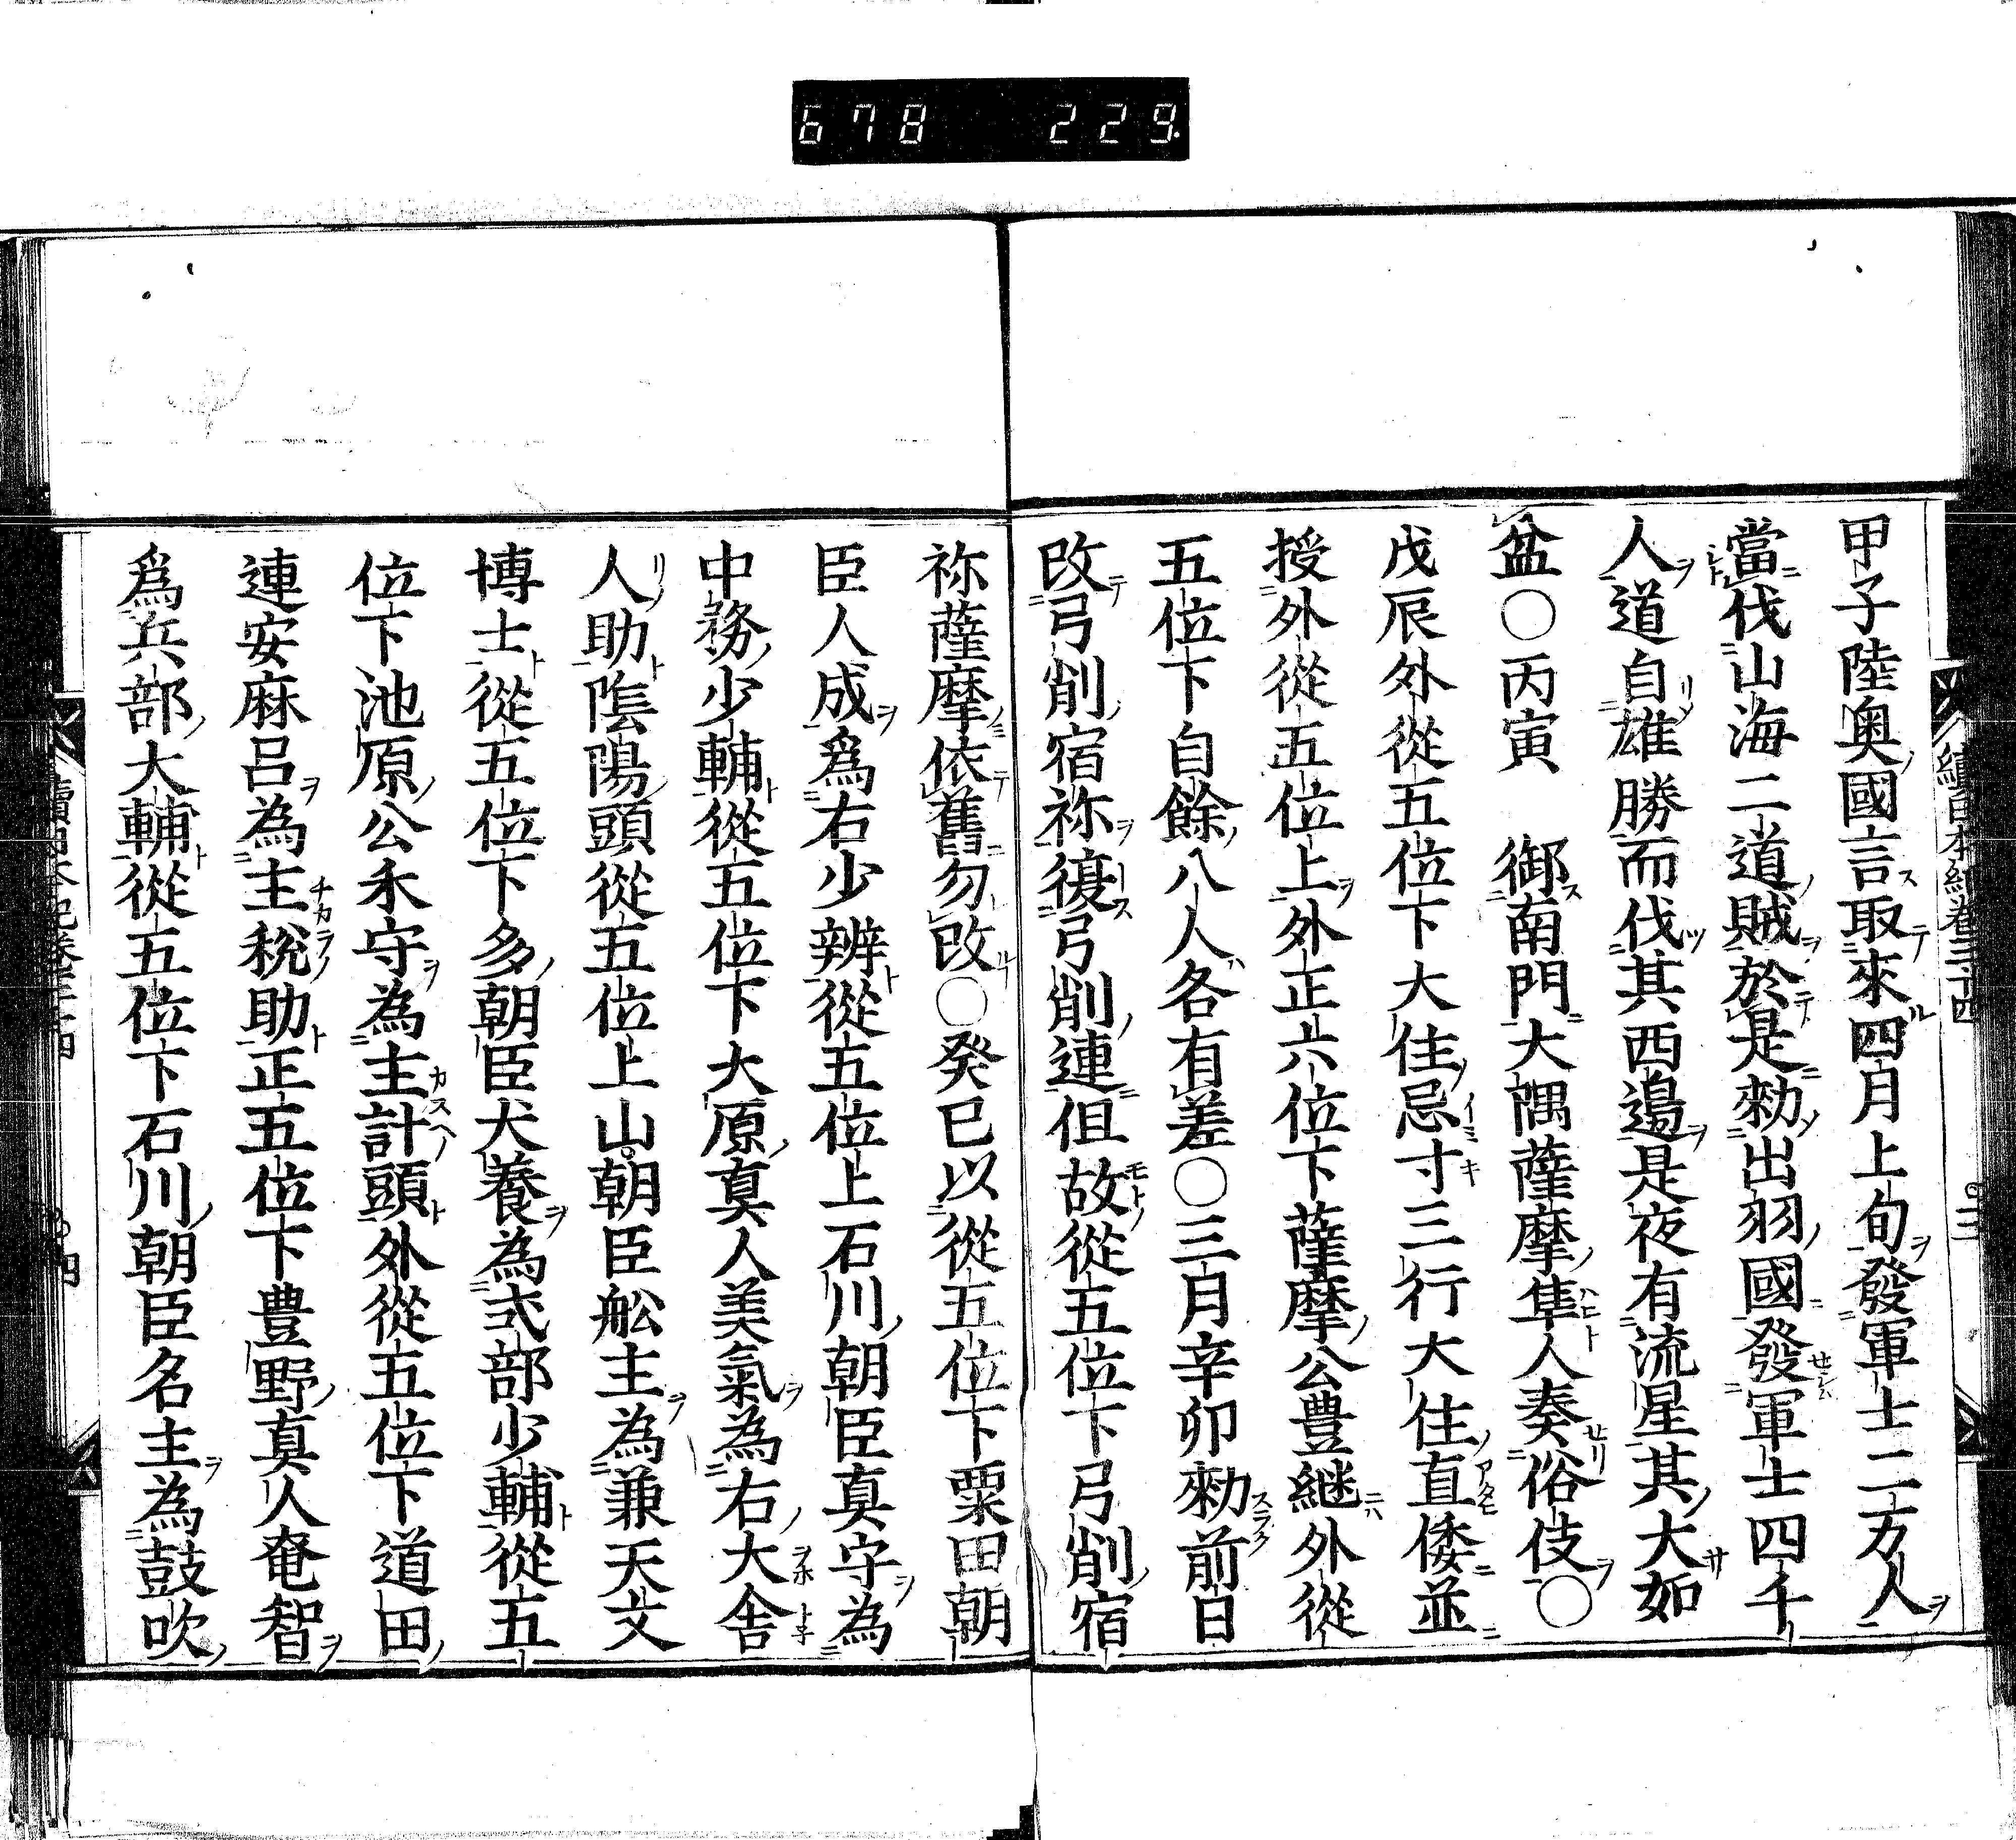 678 229
甲子陸奥國言取來四月上旬發軍士二万人
當伐山海二道賊於是勅出羽國發軍士四千
人道自雄勝而伐其西邉是夜有流星其大如
盆○丙寅 御南門大隅薩摩隼人奏俗伎○
戊辰外從五位下大住忌寸三行大住直倭並
授外從五位上外正六位下薩摩公豊継外從
五位下自餘八人各有差○三月辛卯勅前日
改弓削宿祢復弓削連但故從五位下弓削宿
祢薩摩依舊勿改○癸巳以從五位下粟田朝
臣人成爲右少辨從五位上石川朝臣真守為
中務少輔從五位下大原真人美氣為右大舎
人助陰陽頭從五位上山朝臣舩主為兼天文
博士從五位下多朝臣犬養為式部少輔從五
位下池原公禾守為主計頭外從五位下道田
連安麻呂為主税助正五位下豊野真人奄智
爲兵部大輔從五位下石川朝臣名主為鼓吹